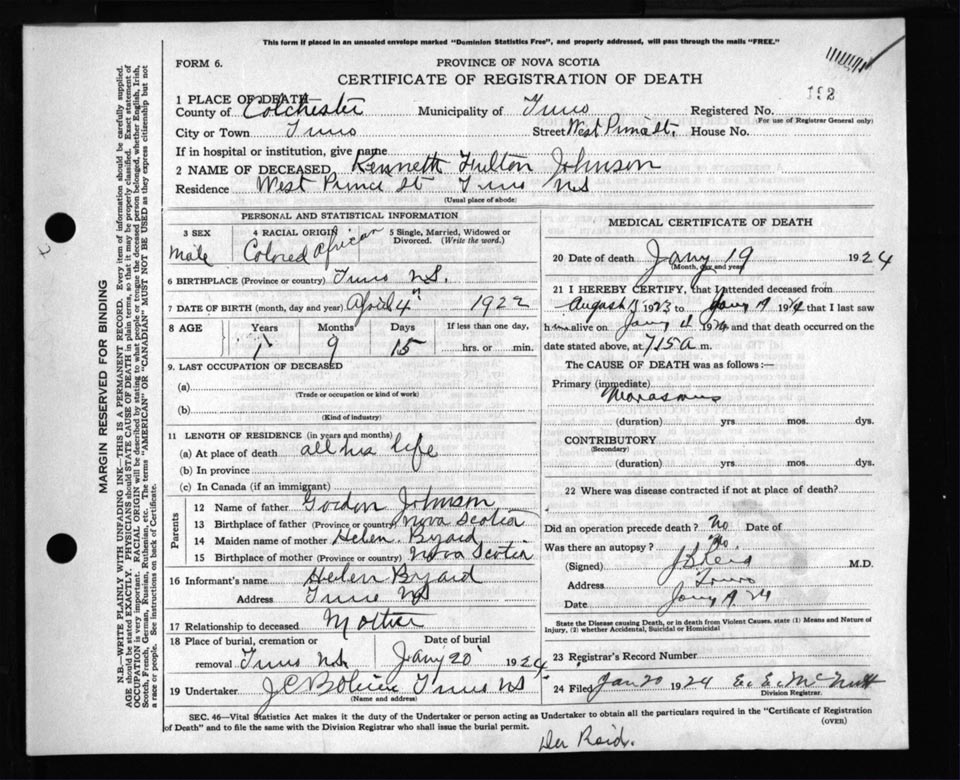 This form if placed in an unsealed envelope marked "Dominion Statistics Free", and properly addressed, will pass through the mails "FREE."
FORM 6.
PROVINCE OF NOVA SCOTIA
CERTIFICATE OF REGISTRATION OF DEATH
192
1 PLACE OF DEATH—
County of Colchester Municipality of Truro Registered No.
(For use of Registrar General only)
City or Town Truro Street West Prince St. House No.
If in hospital or institution, give name
2 NAME OF DECEASED Kenneth Fulton Johnson
Residence West Prince St Truro NS
(Usual place of abode)
PERSONAL AND STATISTICAL INFORMATION
3 SEX 4 RACIAL ORIGIN 5 Single, Married, Widowed or Divorced. (Write the word.)
Male Colored African
6 BIRTHPLACE (Province or country) Truro N.S.
7 DATE OF BIRTH (month, day and year) April 4th 1922
8 AGE Years Months Days If less than one day,
1 9 15 hrs. or min.
9. LAST OCCUPATION OF DECEASED
(a)
(Trade or occupation or kind of work)
(b)
(Kind of industry)
11 LENGTH OF RESIDENCE (in years and months)
(a) At place of death all his life
(b) In province
(c) In Canada (if an immigrant)
Parents
12 Name of father Gordon Johnson
13 Birthplace of father (Province or country) Nova Scotia
14 Maiden name of mother Helen Byard
15 Birthplace of mother (Province or country) Nova Scotia
16 Informant's name Helen Byard
Address Truro NS
17 Relationship to deceased Mother
18 Place of burial, cremation or removal Truro N.S. Date of burial Jany 20 1924
19 Undertaker Truro NS
(Name and address)
MEDICAL CERTIFICATE OF DEATH
20 Date of death Jany 19 1924
(Month, day and year)
21 I HEREBY CERTIFY, that I attended deceased from
August 1923 to Jany 19 1924 that I last saw
him alive on Jany 1924 and that death occurred on
date stated above, at 7 15 A m.
The CAUSE OF DEATH was as follows:—
Primary (immediate) Marasmus
(duration) yrs. mos. dys.
CONTRIBUTORY
(Secondary)
(duration) yrs. mos. dys.
22 Where was disease contracted if not at place of death?
Did an operation precede death? No Date of
Was there an autopsy? No.
(Signed) M.D.
Address Truro
Date Jany 19. 24
State the Disease causing Death, or in death from Violent Causes, state (1) Means and Nature of Injury, (2) whether Accidental, Suicidal or Homicidal
23 Registrar's Record Number
24 Filed Jan 20 1924 McNutt
Division Registrar.
SEC. 46—Vital Statistics Act makes it the duty of the Undertaker or person acting as Undertaker to obtain all the particulars required in the "Certificate of Registration
of Death" and to file the same with the Division Registrar who shall issue the burial permit.
(OVER)
MARGIN RESERVED FOR BINDING
N.B.—WRITE PLAINLY WITH UNFADING INK—THIS IS A PERMANENT RECORD. Every item of information should be carefully supplied.
AGE should be stated EXACTLY. PHYSICIANS should STATE CAUSE OF DEATH in plain terms, so that it may be properly classified. Exact statement of
OCCUPATION is very important. RACIAL ORIGIN will be described by stating to what people or tongue the deceased person belonged, whether English, Irish,
Scotch, French, German, Russian, Ruthenian, etc. The terms "AMERICAN" OR "CANADIAN" MUST NOT BE USED as they express citizenship but not
a race or people. See instructions on back of Certificate.